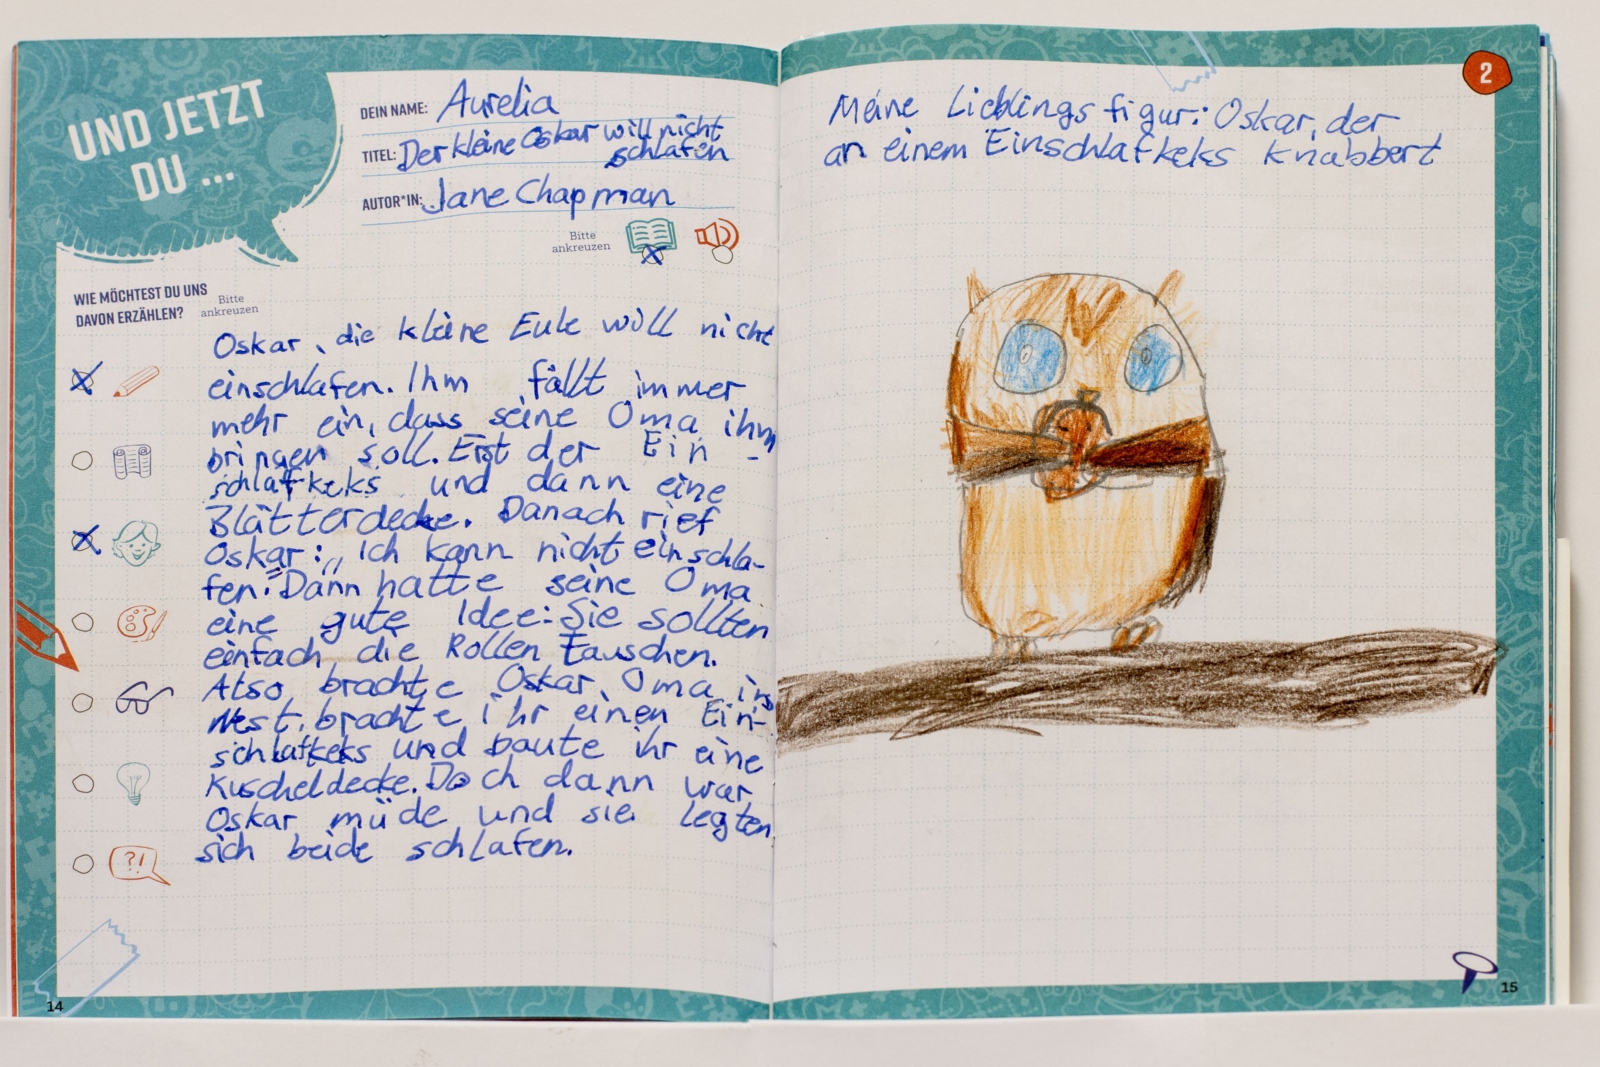 UND JETZT
DU ...
DEIN NAME: Aurelia
TITEL: Der kleine Oskar will nicht
schlafen
AUTOR*IN: Jane Chapman
Bitte
ankreuzen
WIE MÖCHTEST DU UNS
DAVON ERZÄHLEN?
Bitte
ankreuzen
Oskar, die kleine Eule will nicht
einschlafen. Ihm fällt immer
mehr ein, dass seine Oma ihm
bringen soll. Erst der Ein-
schlafkeks und dann eine
Blätterdecke. Danach rief
Oskar: „Ich kann nicht einschla-
fen." Dann hatte seine Oma
eine gute Idee: Sie sollten
einfach die Rollen tauschen.
Also brachte Oskar Oma ins
Nest, brachte ihr einen Ein-
schlafkeks und baute ihr eine
Kuscheldecke. Doch dann war
Oskar müde und sie legten
sich beide schlafen.
?!
14
2
Meine Lieblingsfigur: Oskar, der
an einem Einschlafkeks knabbert
15